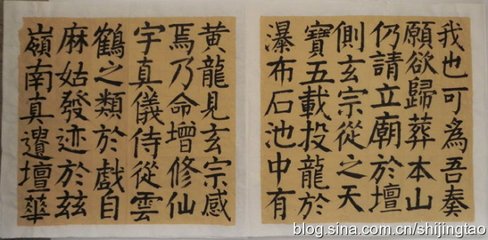 我也可爲吾奏
願欲歸葬本山
仍請立廟於壇
側玄宗從之天
寶五載投龍於
瀑布石池中有
黃龍見玄宗感
焉乃命增修仙
宇真儀侍從雲
鶴之類於戲自
麻姑發迹於兹
嶺南真遺壇華
blog.sina.com.cn/shijingtao